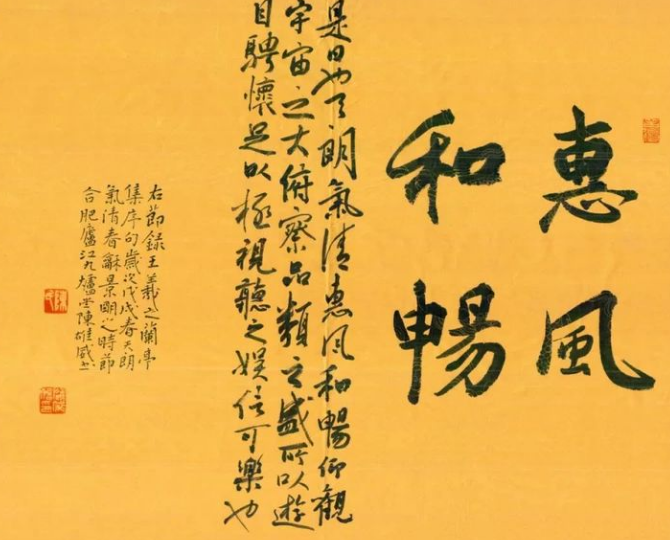 惠風
和暢
是日也天朗氣清惠風和暢仰觀
宇宙之大俯察品類之盛所以遊
目騁懷足以極視聽之娛信可樂也
右節錄王羲之蘭亭
集序句歲次戊戌春天朗
氣清春龢景明之時節
合肥廬江九爐堂陳維威書